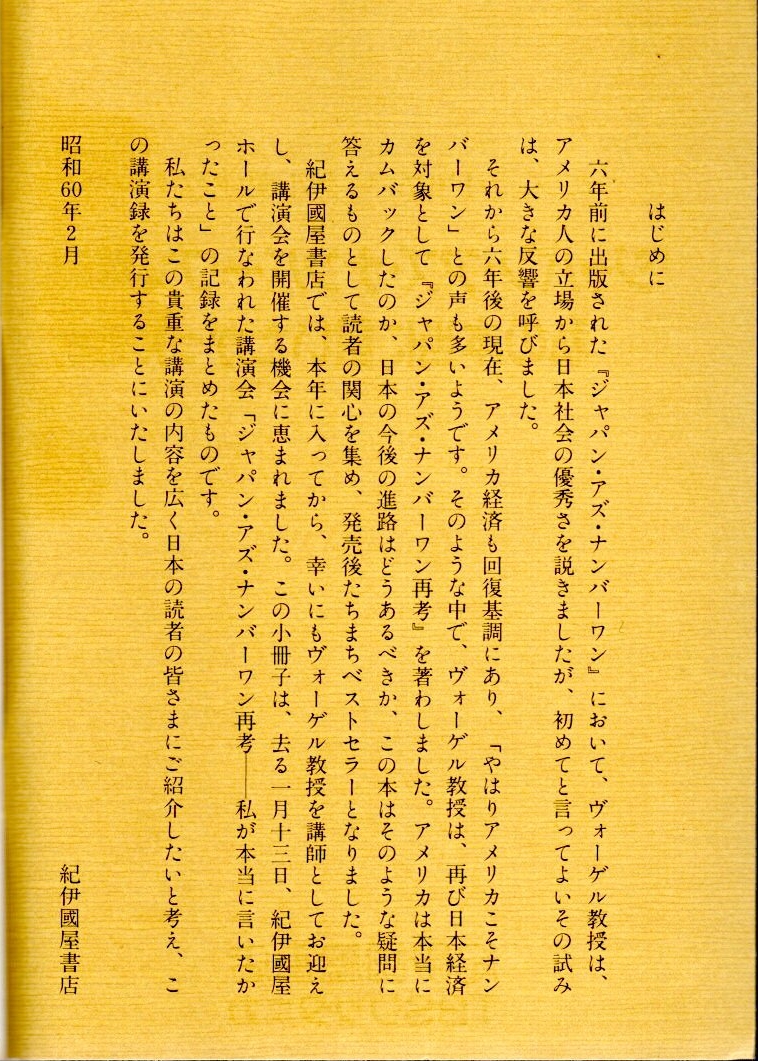 はじめに
六年前に出版された『ジャパン・アズ・ナンバーワン』において、ヴォーゲル教授は、
アメリカ人の立場から日本社会の優秀さを説きましたが、初めてと言ってよいその試み
は、大きな反響を呼びました。
それから六年後の現在、アメリカ経済も回復基調にあり、「やはりアメリカこそナン
バーワン」との声も多いようです。そのような中で、ヴォーゲル教授は、再び日本経済
を対象として『ジャパン・アズ・ナンバーワン再考』を著わしました。アメリカは本当に
カムバックしたのか、日本の今後の進路はどうあるべきか、この本はそのような疑問に
答えるものとして読者の関心を集め、発売後たちまちベストセラーとなりました。
紀伊國屋書店では、本年に入ってから、幸いにもヴォーゲル教授を講師としてお迎え
し、講演会を開催する機会に恵まれました。この小冊子は、去る一月十三日、紀伊國屋
ホールで行なわれた講演会「ジャパン・アズ・ナンバーワン再考――私が本当に言いたか
ったこと」の記録をまとめたものです。
私たちはこの貴重な講演の内容を広く日本の読者の皆さまにご紹介したいと考え、こ
の講演録を発行することにいたしました。
昭和60年2月
紀伊國屋書店